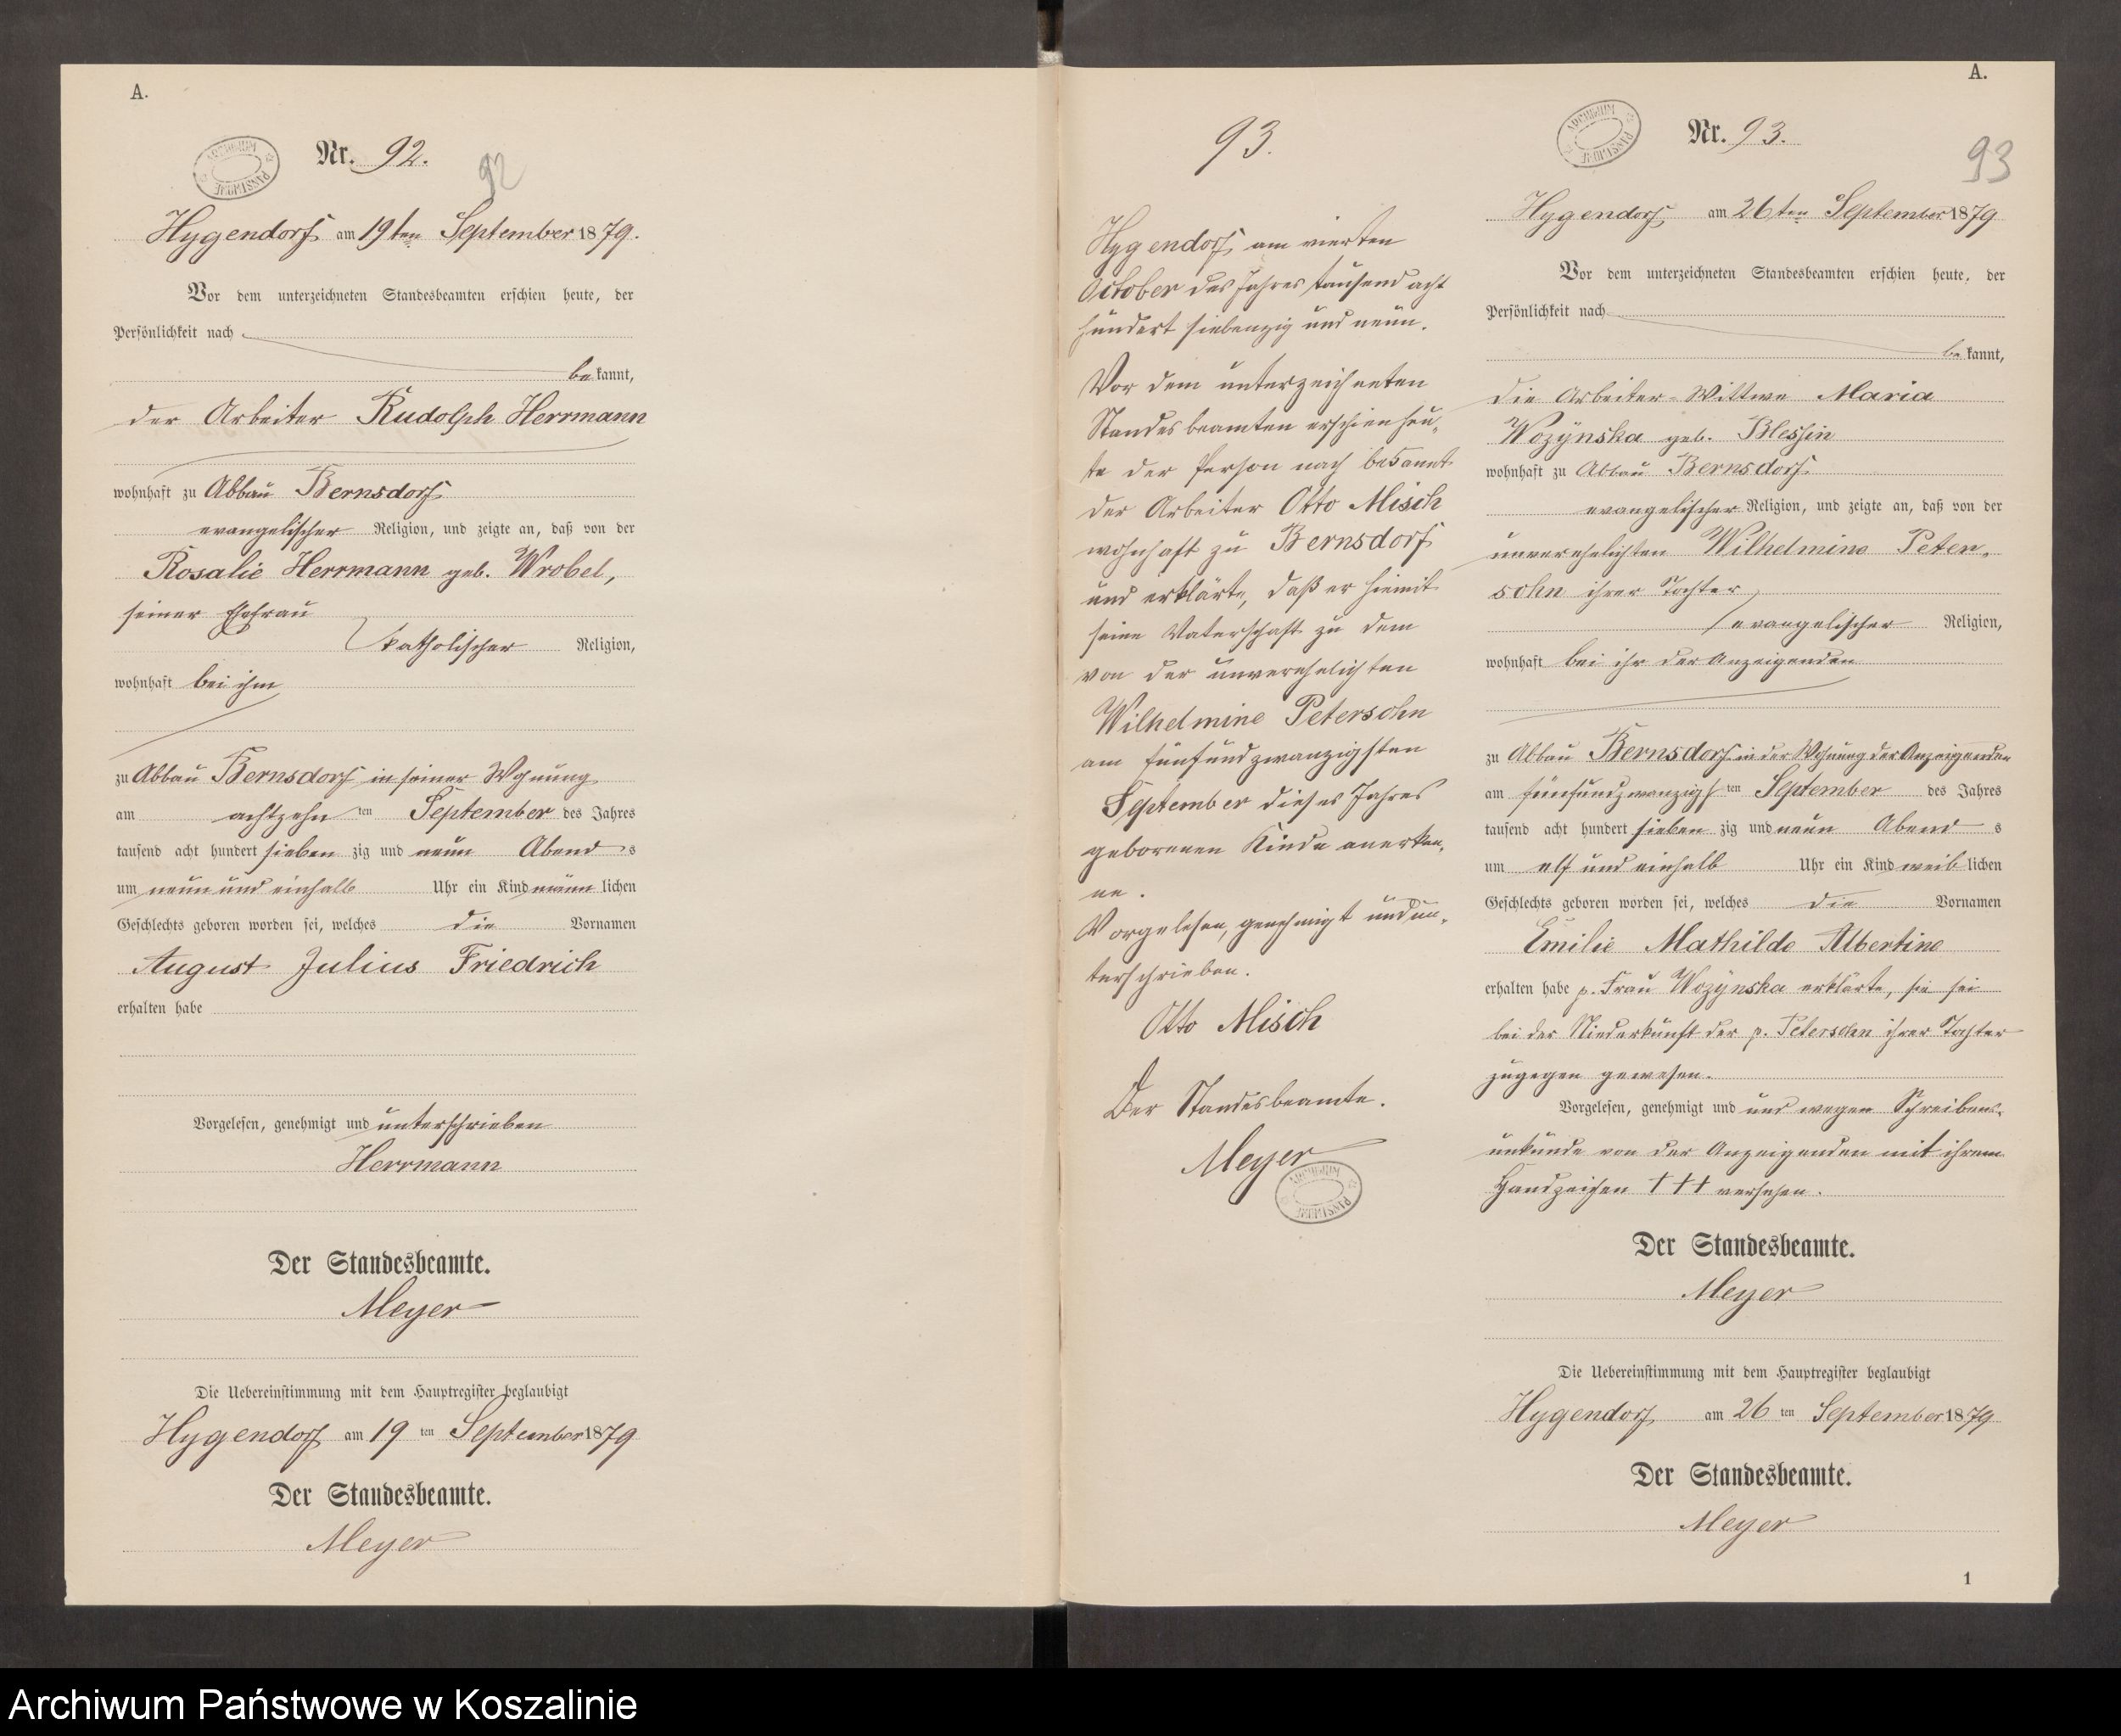 A.
Nr. 92.
92
Hygendorf am 19ten September 1879.
Vor dem unterzeichneten Standesbeamten erschien heute, der
Persönlichkeit nach
be kannt,
der Arbeiter Rudolph Herrmann
wohnhaft zu Abbau Bernsdorf
evangelischer Religion, und zeigte an, daß von der
Rosalie Herrmann geb. Wrobel,
seiner Ehefrau
katholischer Religion,
wohnhaft bei ihm
zu Abbau Bernsdorf in seiner Wohnung
am achtzehn ten September des Jahres
tausend acht hundert sieben zig und neun Abend s
um neun und einhalb Uhr ein Kind männ lichen
Geschlechts geboren worden sei, welches die Vornamen
August Julius Friedrich
erhalten habe
Vorgelesen, genehmigt und unterschrieben
Herrmann
Der Standesbeamte.
Meyer
Die Uebereinstimmung mit dem Hauptregister beglaubigt
Hygendorf am 19 ten September 1879
Der Standesbeamte.
Meyer
93.
Hygendorf, am vierten
October des Jahres tausend acht
hundert siebenzig und neun.
Vor dem unterzeichneten
Standesbeamten erschien heu-
te der Person nach bekannt
der Arbeiter Otto Misch
wohnhaft zu Bernsdorf
und erklärte, daß er hiemit
seine Vaterschaft zu dem
von der unverehelichten
Wilhelmine Petersohn
am fünfundzwanzigsten
September dieses Jahres
geborenen Kinde anerken-
ne.
Vorgelesen, genehmigt und un-
terschrieben.
Otto Misch
Der Standesbeamte.
Meyer
ARCHIWUM PAŃSTWOWE
A.
Nr. 93.
93
Hygendorf am 26ten September 1879
Vor dem unterzeichneten Standesbeamten erschien heute, der
Persönlichkeit nach
be kannt,
die Arbeiter-Wittwe Maria
Wozÿnska geb. Blessin
wohnhaft zu Abbau Bernsdorf
evangelischer Religion, und zeigte an, daß von der
unverehelichten Wilhelmine Peter-
sohn ihrer Tochter
evangelischer Religion,
wohnhaft bei ihr der Anzeigenden
zu Abbau Bernsdorf in der Wohnung der Anzeigenden
am fünfundzwanzigs ten September des Jahres
tausend acht hundert sieben zig und neun Abend s
um elf und einhalb Uhr ein Kind weib lichen
Geschlechts geboren worden sei, welches die Vornamen
Emilie Mathilde Albertine
erhalten habe p. Frau Wozÿnska erklärte, sie sei
bei der Niederkunft der p. Petersohn ihrer Tochter
zugegen gewesen.
Vorgelesen, genehmigt und und wegen Schreibens-
unkunde von der Anzeigenden mit ihrem
Handzeichen +++ versehen.
Der Standesbeamte.
Meyer
Die Uebereinstimmung mit dem Hauptregister beglaubigt
Hygendorf am 26 ten September 1879
Der Standesbeamte.
Meyer
1
Archiwum Państwowe w Koszalinie